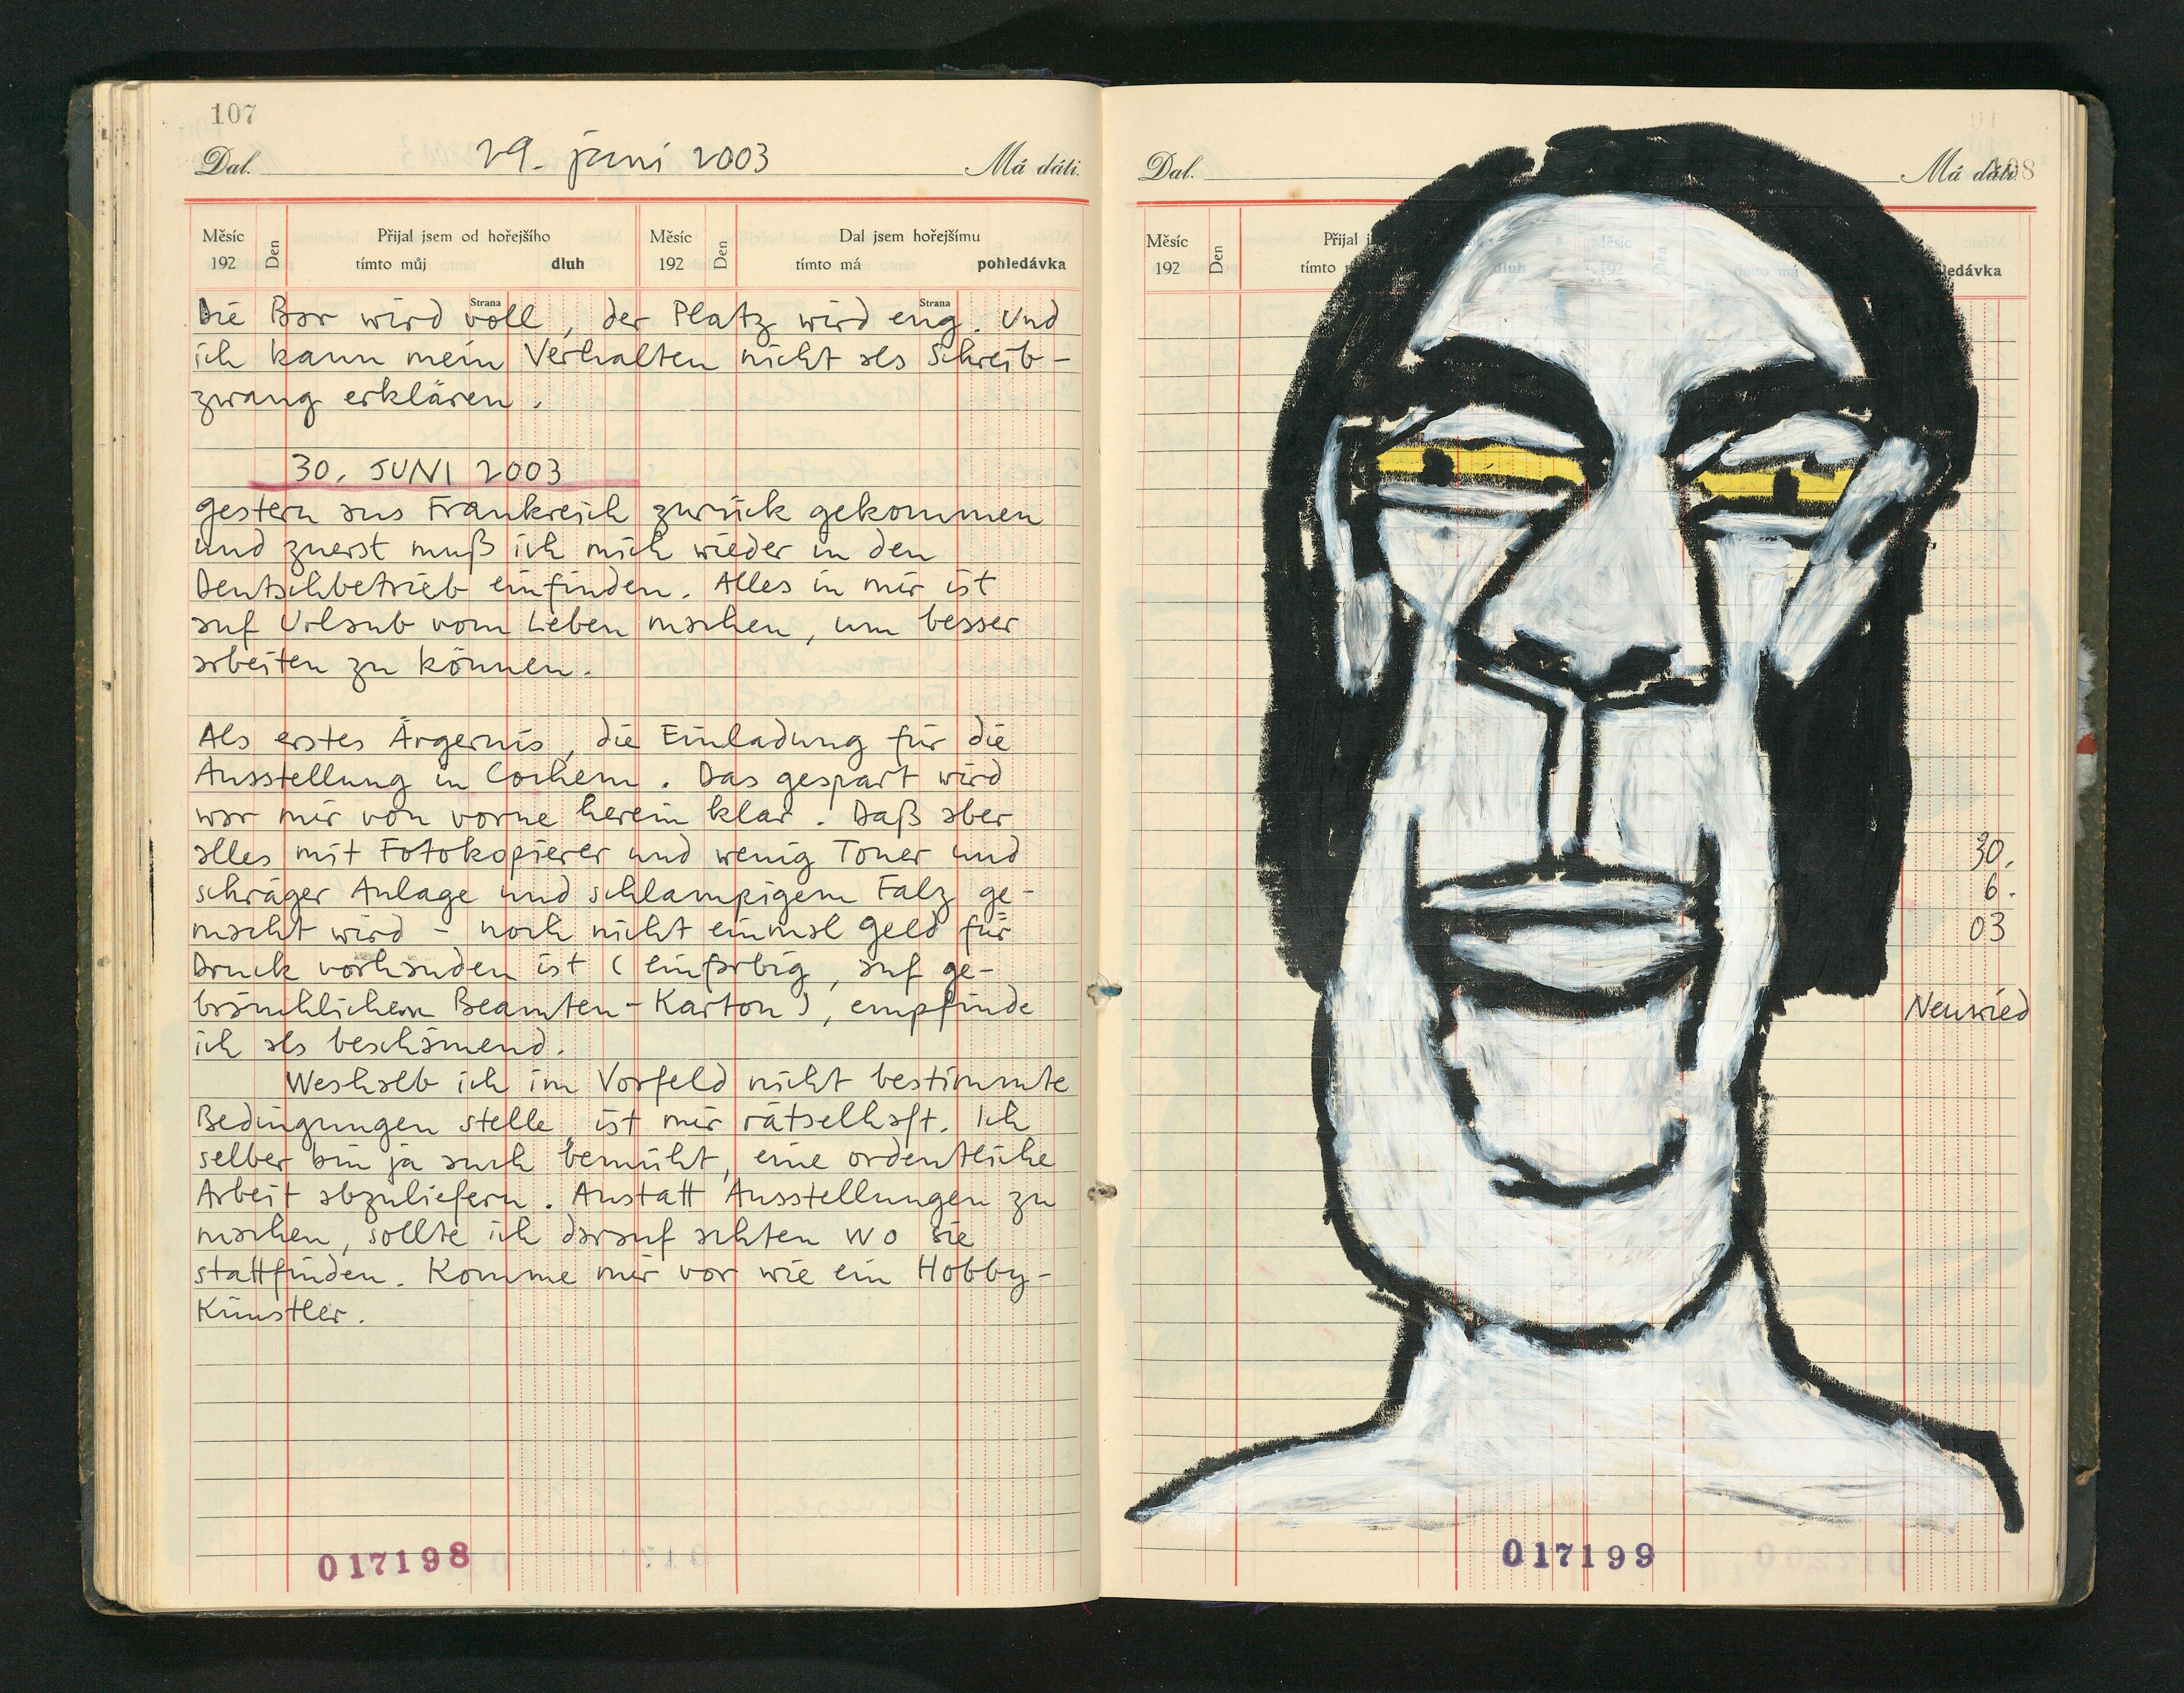 107
Dal. 29. juni 2003 Má dáti.
Měsíc Přijal jsem od hořejšího Měsíc Dal jsem hořejšímu
192 Den tímto můj dluh 192 Den tímto má pohledávka
Strana Strana
Die Bar wird voll, der Platz wird eng. Und
ich kann mein Verhalten nicht als Schreib-
zwang erklären.
30. JUNI 2003
gestern aus Frankreich zurück gekommen
und zuerst muß ich mich wieder in den
Deutschbetrieb einfinden. Alles in mir ist
auf Urlaub vom Leben machen, um besser
arbeiten zu können.
Als erstes Ärgernis, die Einladung für die
Ausstellung in Cochem. Das gespart wird
war mir von vorne herein klar. Daß aber
alles mit Fotokopierer und wenig Toner und
schräger Anlage und schlampigem Falz ge-
macht wird - noch nicht einmal Geld für
Druck vorhanden ist (einfarbig, auf ge-
bräuchlichem Beamten-Karton), empfinde
ich als beschämend.
Weshalb ich im Vorfeld nicht bestimmte
Bedingungen stelle, ist mir rätselhaft. Ich
selber bin ja auch bemüht, eine ordentliche
Arbeit abzuliefern. Anstatt Ausstellungen zu
machen, sollte ich darauf achten wo sie
stattfinden. Komme mir vor wie ein Hobby-
Künstler.
017198
Dal. Má dáti. 108
Měsíc Přijal
192 Den tímto
ledávka
30.
6.
03
Neuwied
017199